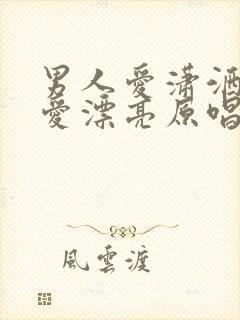 男人愛潇洒
愛漂亮原唱
風雲渡